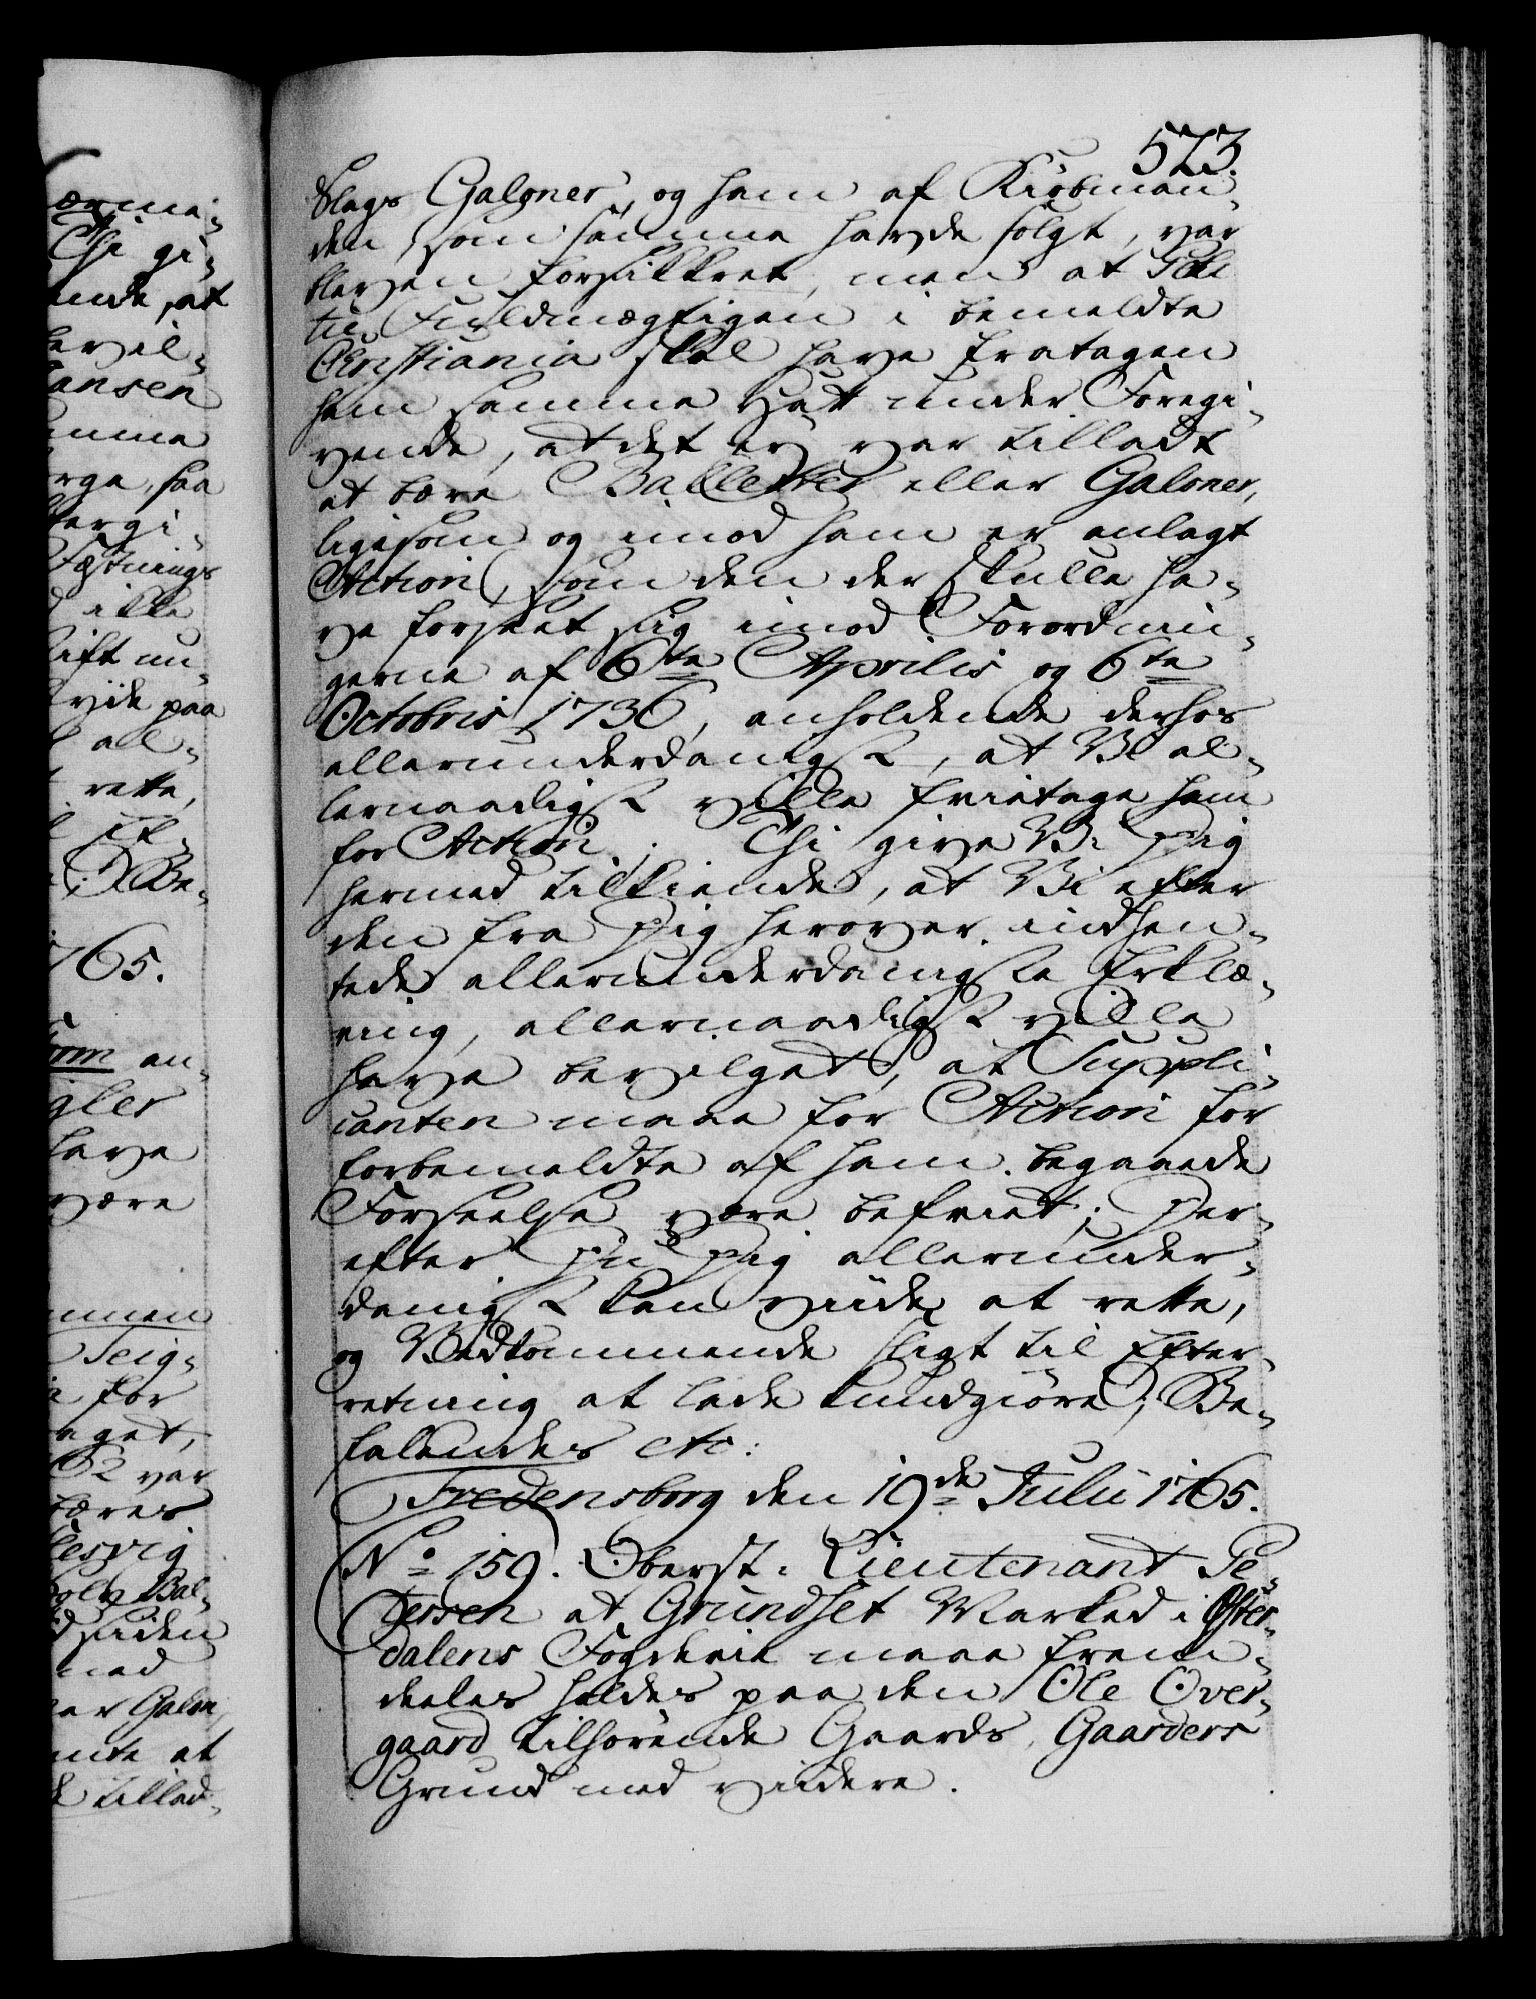 573.
slags Galoner, og ham af Kiøbman-
den, som samme havde solgt, var
bleven forsikkret, men at
Fuldmægtigen i bemeldte
Christiania skal have fratagen
ham samme Hat under Foregi-
vende, at det ej var tilladt
at bære Balletter eller Galoner,
ligesom og imod ham er anlagt
Action, som den der skulle ha-
ve forseet sig imod Forordnin-
gerne af 6te Aprilis og 6te
Octobris 1736, anholdende derhos
allerunderdanigst, at Vi al-
lernaadigst ville frietage ham
for Action. Thi give Vi Dig
hermed tilkiende, at Vi efter
den fra Dig herover indhen-
tede allerunderdanigste Erklæ-
ring, allernaadigst ville
have bevilget, at Suppli-
canten maae for Action for
forbemeldte af ham begaaede
Forseelse være befriet; Der-
efter Du Dig allerunder-
danigst kan viide at rette,
og Vedkommende sligt til Efter-
retning at lade kundgiøre; Be-
falendes etc:
Fredensborg den 19de Julii 1765.
No 159. Oberst-Lieutenant Pe-
tersen at Grundset Marked i Øster-
dalens Fogderie maae frem-
deeles holdes paa den Ole Over-
gaard tilhørende Gaards, Gaarders
Grund med viidere.
ærme-
Thi gi-
ende, at
bevil-
ansen
amme
rge, saa
tergi-
Fæstnings
d ikke
sift nu-
viide paa
all-
rette,
Be-
1765.
om an-
gler
have
være
mmen
Teig-
for
aget,
62 var
bæres
lesvig
Bal-
d siden
med
ar Galon
mte at
tillad-